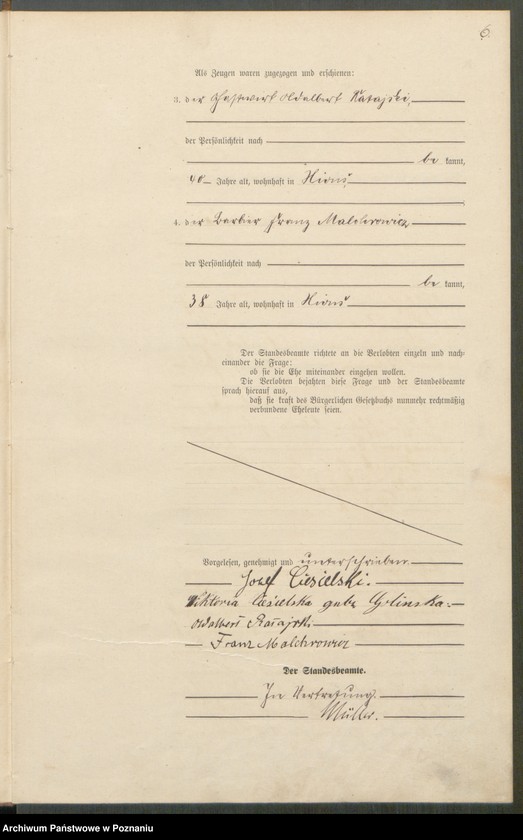 6.
Als Zeugen waren zugezogen und erschienen:
3. der Gastwirt Adalbert Ratajski,
der Persönlichkeit nach
be kannt,
40 Jahre alt, wohnhaft in Xions,
4. der Barbier Franz Malchrowicz
der Persönlichkeit nach
be kannt,
38 Jahre alt, wohnhaft in Xions
Der Standesbeamte richtete an die Verlobten einzeln und nach-
einander die Frage:
ob sie die Ehe miteinander eingehen wollen.
Die Verlobten bejahten diese Frage und der Standesbeamte
sprach hierauf aus,
daß sie kraft des Bürgerlichen Gesetzbuchs nunmehr rechtmäßig
verbundene Eheleute seien.
Vorgelesen, genehmigt und unterschrieben
Josef Ciesielski.
Viktoria Ciesielska geb. Golinska
Adalbert Ratajski
Franz Malchrowicz
Der Standesbeamte.
In Vertretung.
Müller.
Archiwum Państwowe w Poznaniu